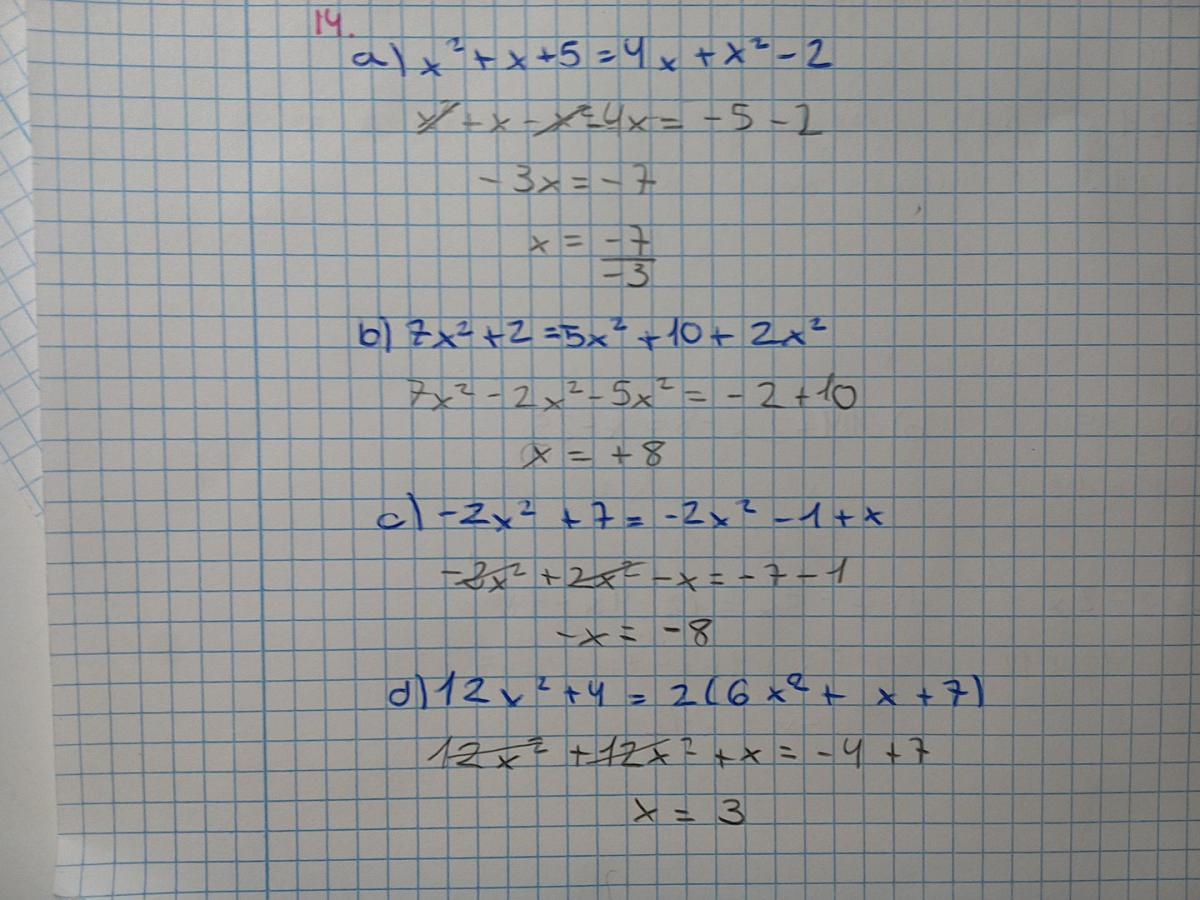 14.
a) x² + x + 5 = 4x + x² - 2
x² + x - x² - 4x = -5 - 2
-3x = -7
x = -7/-3
b) 7x² + 2 = 5x² + 10 + 2x²
7x² - 2x² - 5x² = -2 + 10
x = +8
c) -2x² + 7 = -2x² - 1 + x
-2x² + 2x² - x = -7 - 1
-x = -8
d) 12x² + 4 = 2(6x² + x + 7)
12x² + 12x² + x = -4 + 7
x = 3